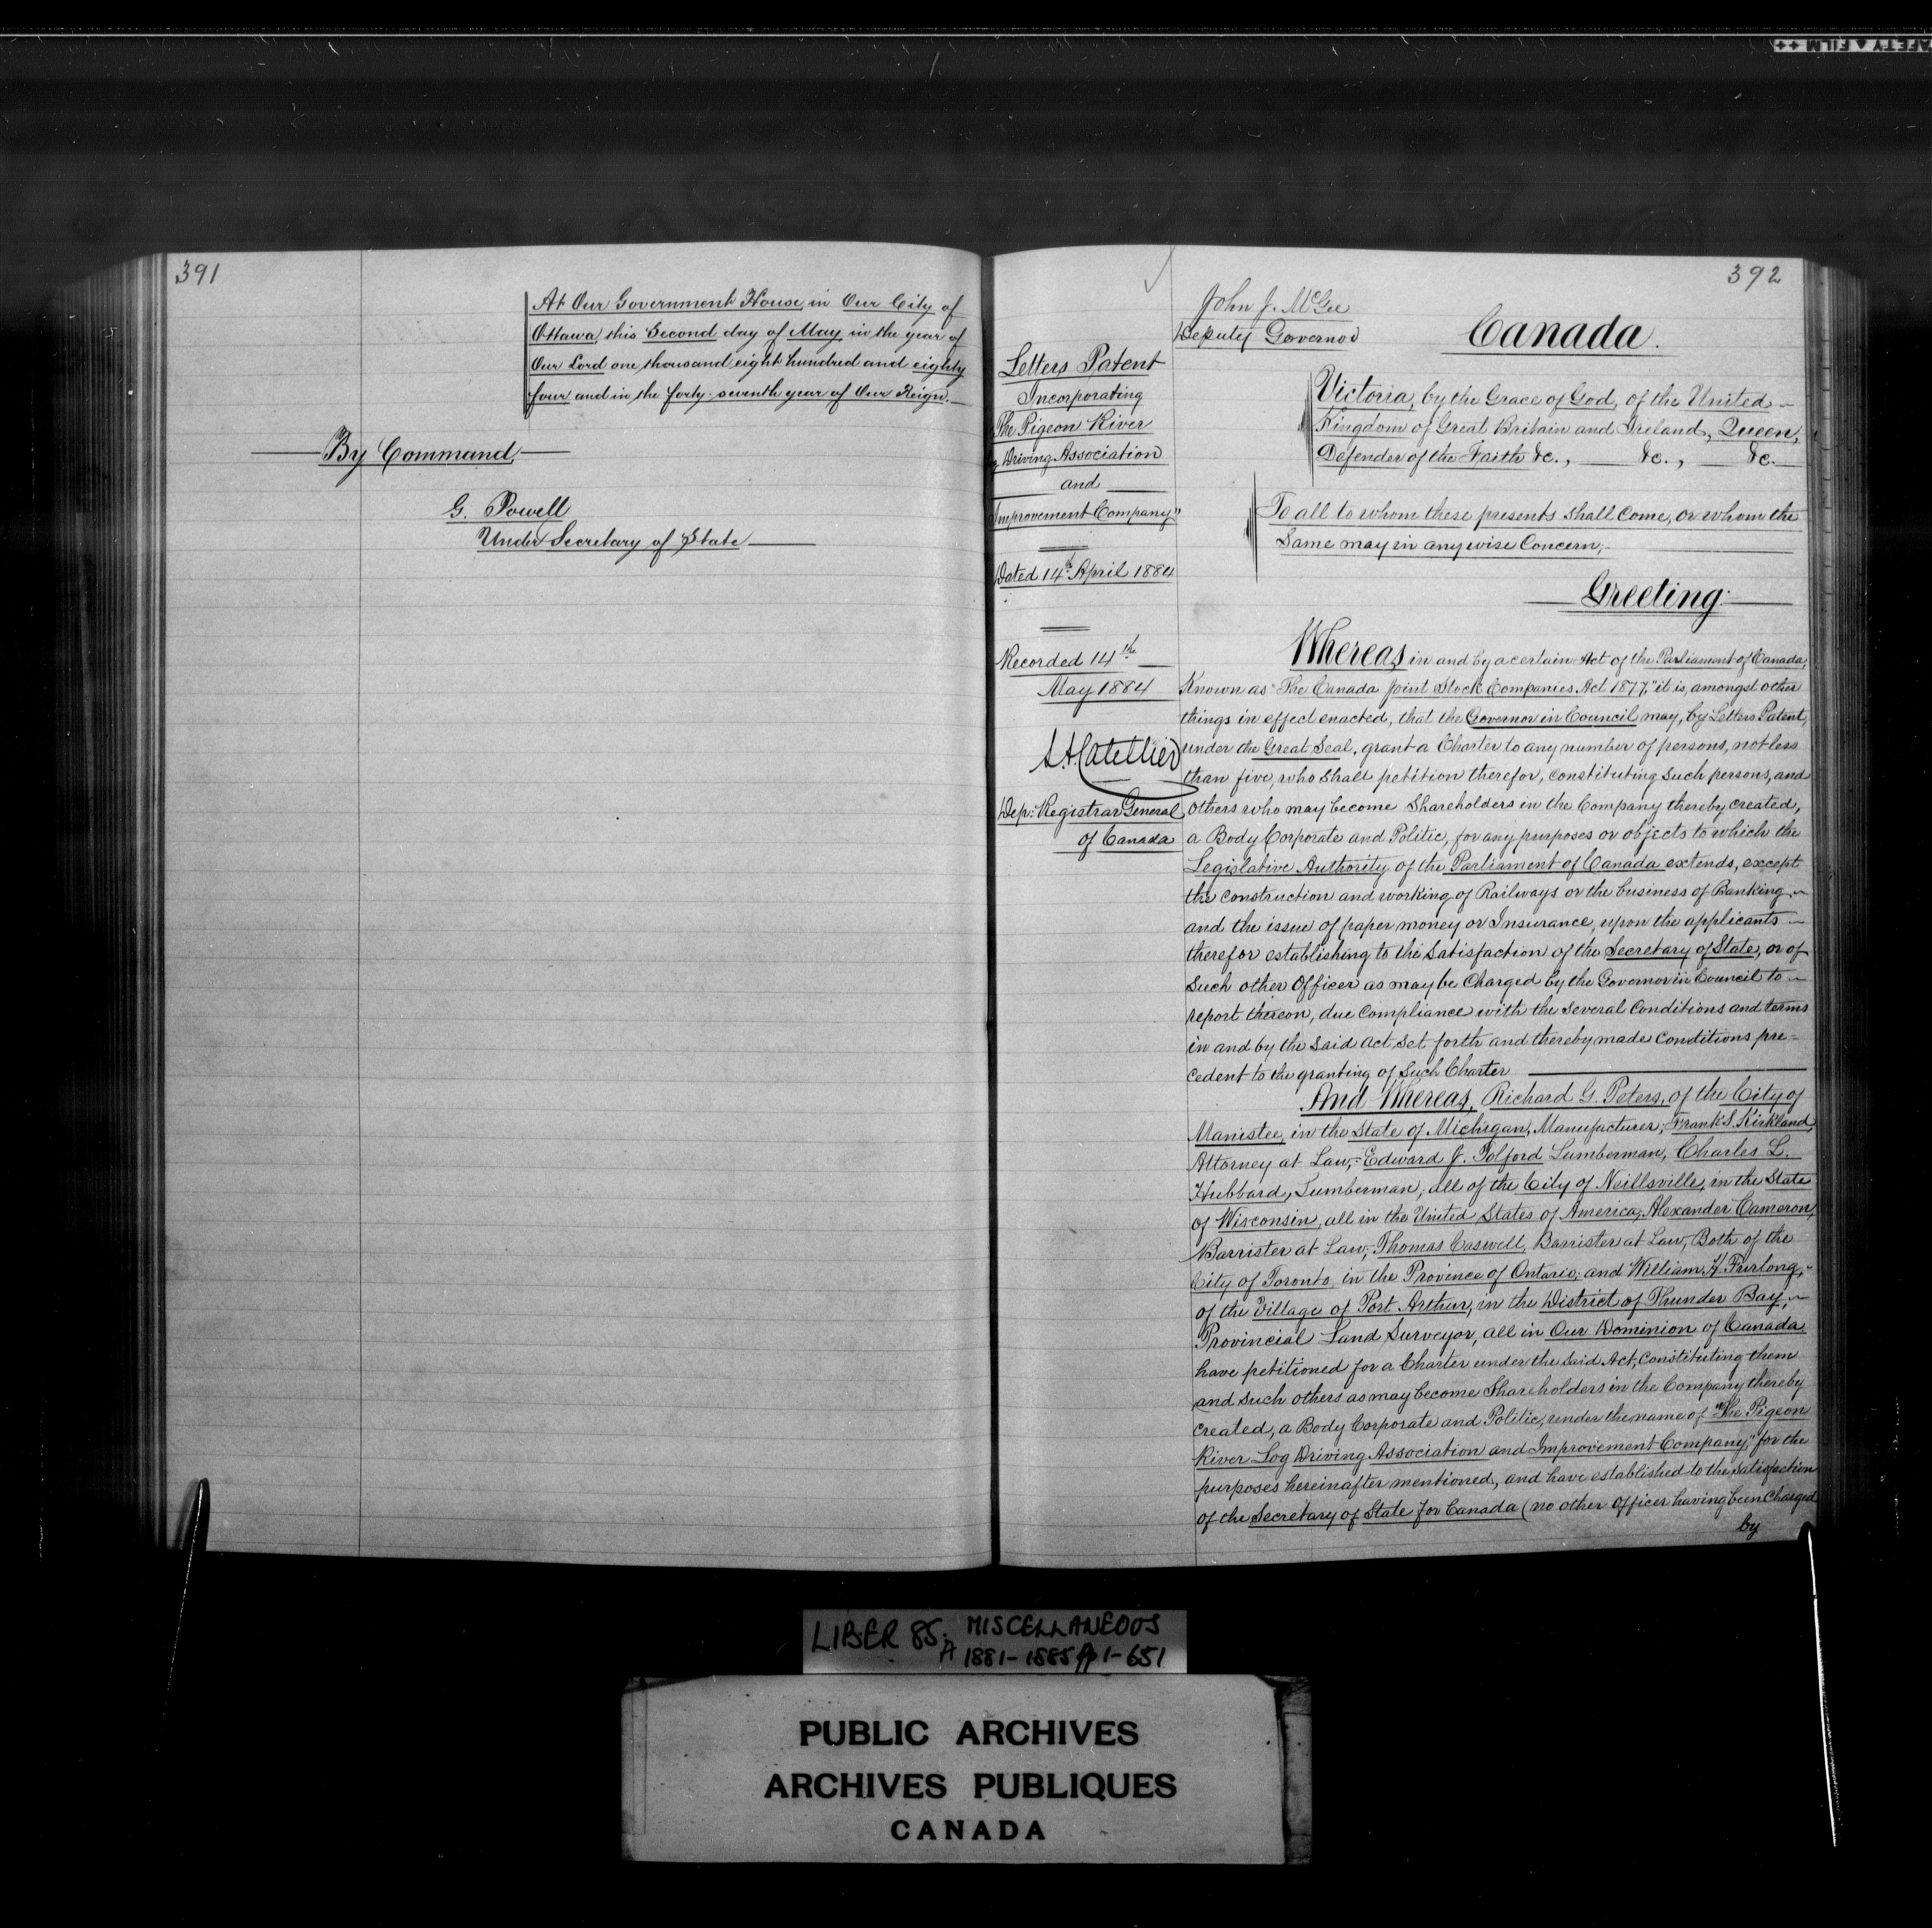 391
At Our Government House, in Our City of
Ottawa, this Second day of May, in the year of
Our Lord one thousand eight hundred and eighty
four and in the forty-seventh year of Our Reign.
By Command,
G. Powell
Under Secretary of State
392
John J. McGee
Deputy Governor
Canada.
Letters Patent
Incorporating
The Pigeon River
g Driving Association
and
Improvement Company"
Dated 14th April 1884
Recorded 14th
May 1884
Dep: Registrar General
of Canada
Victoria, by the Grace of God, of the United
Kingdom of Great Britain and Ireland, Queen,
Defender of the Faith &c., &c., &c.
To all to whom these presents shall come, or whom the
Same may in anywise Concern,
Greeting:
Whereas, in and by a certain Act of the Parliament of Canada,
Known as "The Canada Joint Stock Companies Act 1877," it is, amongst other
things in effect enacted, that the Governor in Council may, by Letters Patent,
under the Great Seal, grant a Charter to any number of persons, not less
than five, who shall petition therefor, constituting such persons, and
others who may become Shareholders in the Company thereby created,
a Body Corporate and Politic, for any purposes or objects to which the
Legislative Authority of the Parliament of Canada extends, except
the construction and working of Railways or the business of Banking
and the issue of paper money or Insurance, upon the applicants
therefor establishing to the Satisfaction of the Secretary of State, or of
Such other Officer as may be Charged by the Governor in Council to
report thereon, due compliance with the several Conditions and terms
in and by the said Act set forth and thereby made Conditions pre-
cedent to the granting of Such Charter
And Whereas, Richard G. Peters, of the City of
Manistee, in the State of Michigan, Manufacturer; Frank S. Kirkland,
Attorney at Law; Edward J. Polford Lumberman, Charles L.
Hubbard, Lumberman, all of the City of Neillsville, in the State
of Wisconsin, all in the United States of America; Alexander Cameron,
Barrister at Law; Thomas Caswell, Barrister at Law, Both of the
City of Toronto, in the Province of Ontario; and William H. Furlong,
of the Village of Port Arthur, in the District of Thunder Bay,
Provincial Land Surveyor, all in Our Dominion of Canada,
have petitioned for a Charter under the said Act, Constituting them
and such others as may become Shareholders in the Company thereby
created, a Body Corporate and Politic, under the name of "The Pigeon
River Log Driving Association and Improvement Company," for the
purposes hereinafter mentioned, and have established to the satisfaction
of the Secretary of State for Canada (no other Officer having been Charged
by
LIBER 85. A MISCELLANEOUS
1881-1885 pp 1-651
PUBLIC ARCHIVES
ARCHIVES PUBLIQUES
CANADA